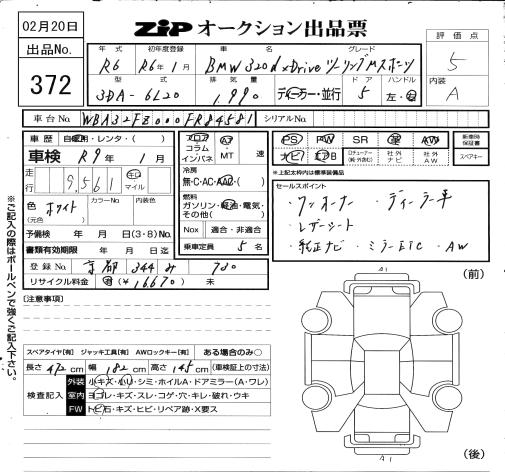 02月20日
ZIP オークション出品票
評価点
出品No.
372
年式 初年度登録 車名 グレード
R6 R6年1月 BMW 320d xDrive ツーリングMスポーツ
5
型式 排気量 ドア ハンドル
内装
3DA-6L20 1,990 ディーラー・並行 5 左・右
A
車台No. WBA32FZ000FR84581 シリアルNo.
車歴 自家用・レンタ・( )
車検 R9年1月
走行 9,561 キロ マイル
色 ホワイト (元色) カラーNo. 内装色
予備検 年 月 日(3・8)No.
書類有効期限 年 月 日迄
登録No. 京都 344 み 780
リサイクル料金 済(¥16670) 未
フロア コラム インパネ
AT MT 速
冷房 無・C・AC・AAC・( )
燃料 ガソリン・軽油・電気・その他( )
Nox 適合・非適合
乗車定員 5名
PS PW SR 革 AW
ナビ エアB 社外ナビ 社外AW
新車時保証書
スペアキー
※上記太枠内は標準装備品
セールスポイント
・ワンオーナー ・ディーラー車
・レザーシート
・純正ナビ ・ミラーETC ・AW
※ご記入の際はボールペンで強くご記入下さい。
[注意事項]
スペアタイヤ[有] ジャッキ工具[有] AWロックキー[有] ある場合のみ○
長さ 472cm 幅 182cm 高さ 145cm (車検証上の寸法)
検査記入
外装 小キズ・小凹・シミ・ホイルA・ドアミラー(A・ワレ)
室内 ヨゴレ・キズ・スレ・コゲ・穴・キレ・破れ・ウキ
FW トビ石・キズ・ヒビ・リペア跡・X要ス
A1
(前)
A1
(後)